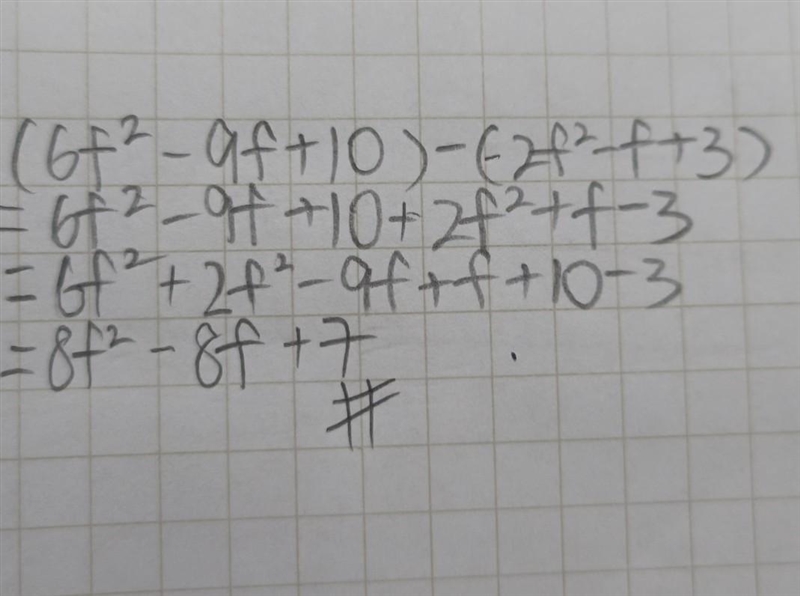 (6f² - 9f + 10) - (-2f² - f + 3)
= 6f² - 9f + 10 + 2f² + f - 3
= 6f² + 2f² - 9f + f + 10 - 3
= 8f² - 8f + 7
#